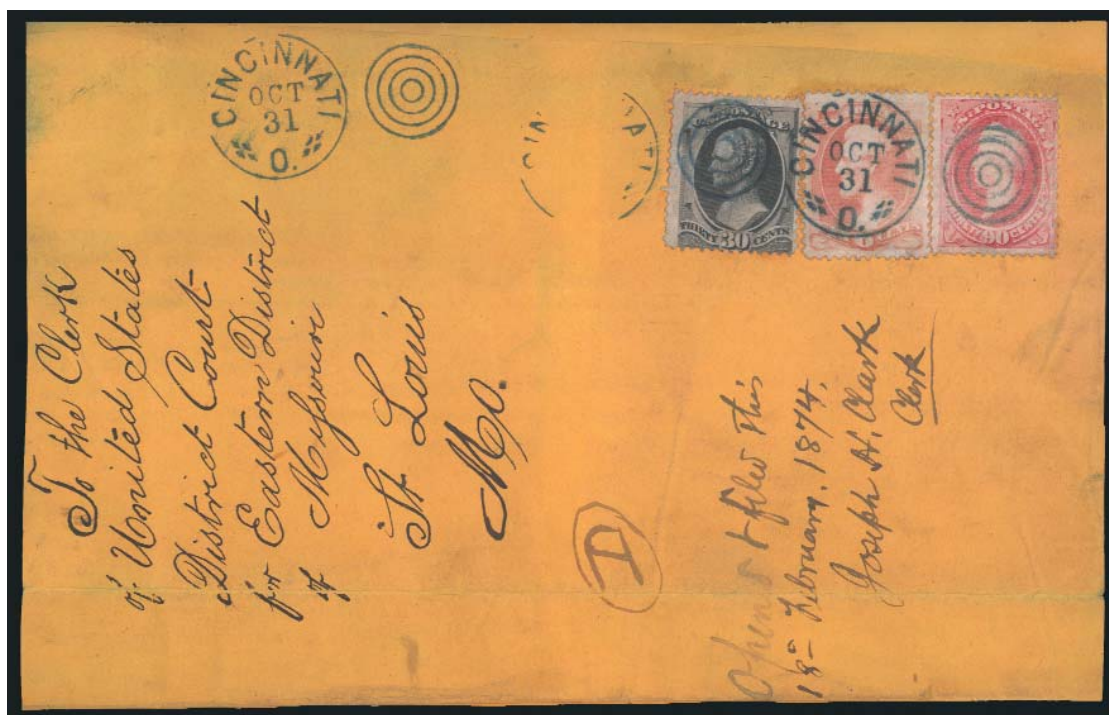 CINCINNATI
OCT
31
O.
CIN
NATI
U.S. POSTAGE
THIRTY 30 CENTS
CINCINNATI
OCT
31
O.
U.S. POSTAGE
90
To the Clerk
of United States
District Court
for Eastern District
of Missouri
St Louis
Mo.
D
Opened & filed this
18- February, 1874.
Joseph H. Clark
Clerk